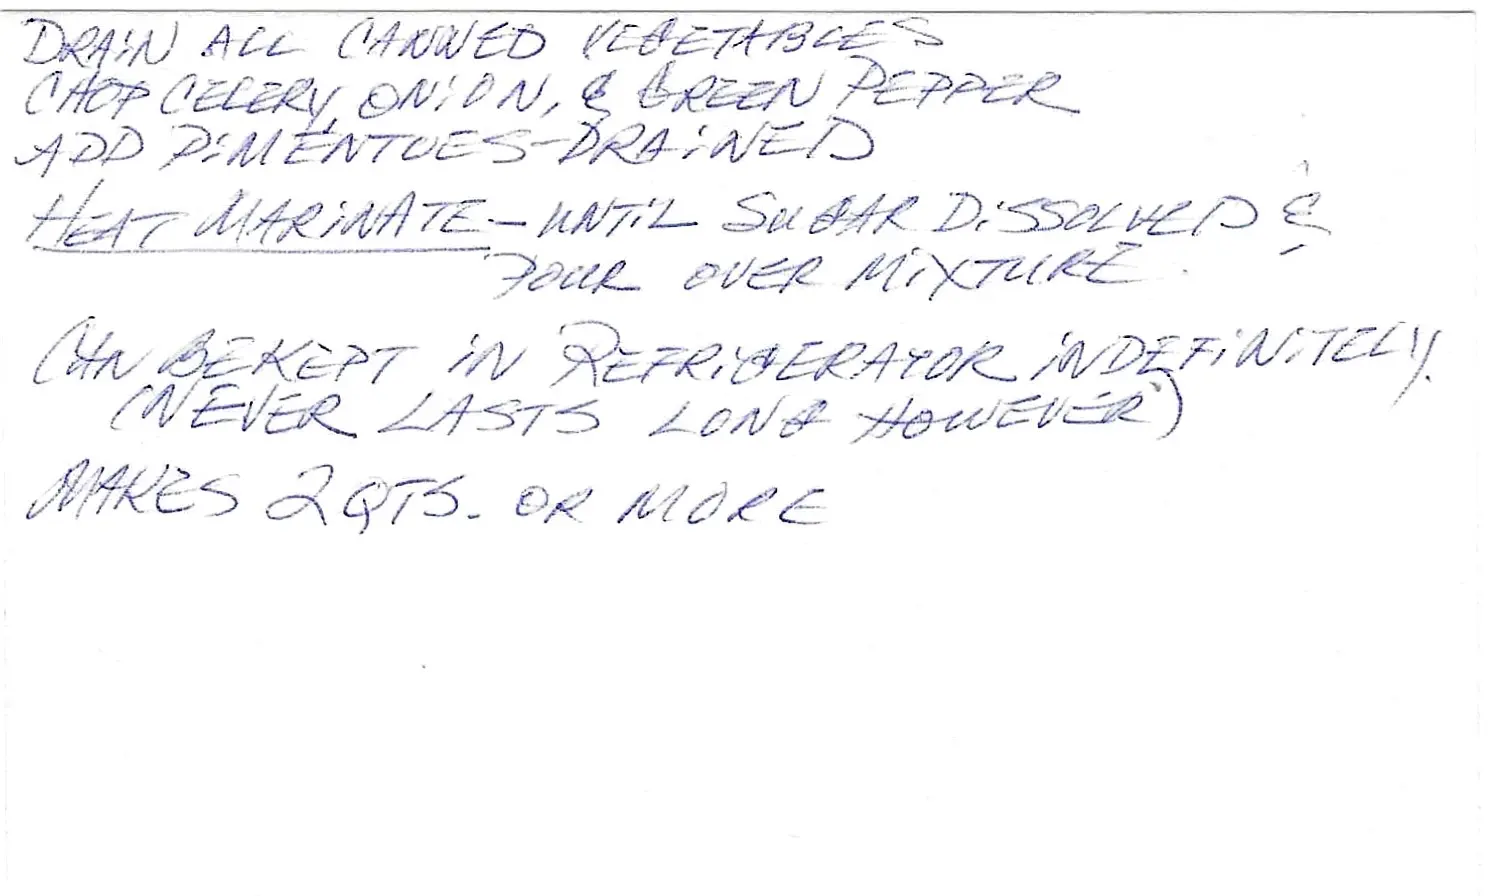 DRAIN ALL CANNED VEGETABLES
CHOP CELERY, ONION, & GREEN PEPPER
ADD PIMENTOES-DRAINED
HEAT MARINATE - UNTIL SUGAR DISSOLVED &
POUR OVER MIXTURE.
CAN BE KEPT IN REFRIGERATOR INDEFINITELY.
(NEVER LASTS LONG HOWEVER)
MAKES 2 QTS. OR MORE